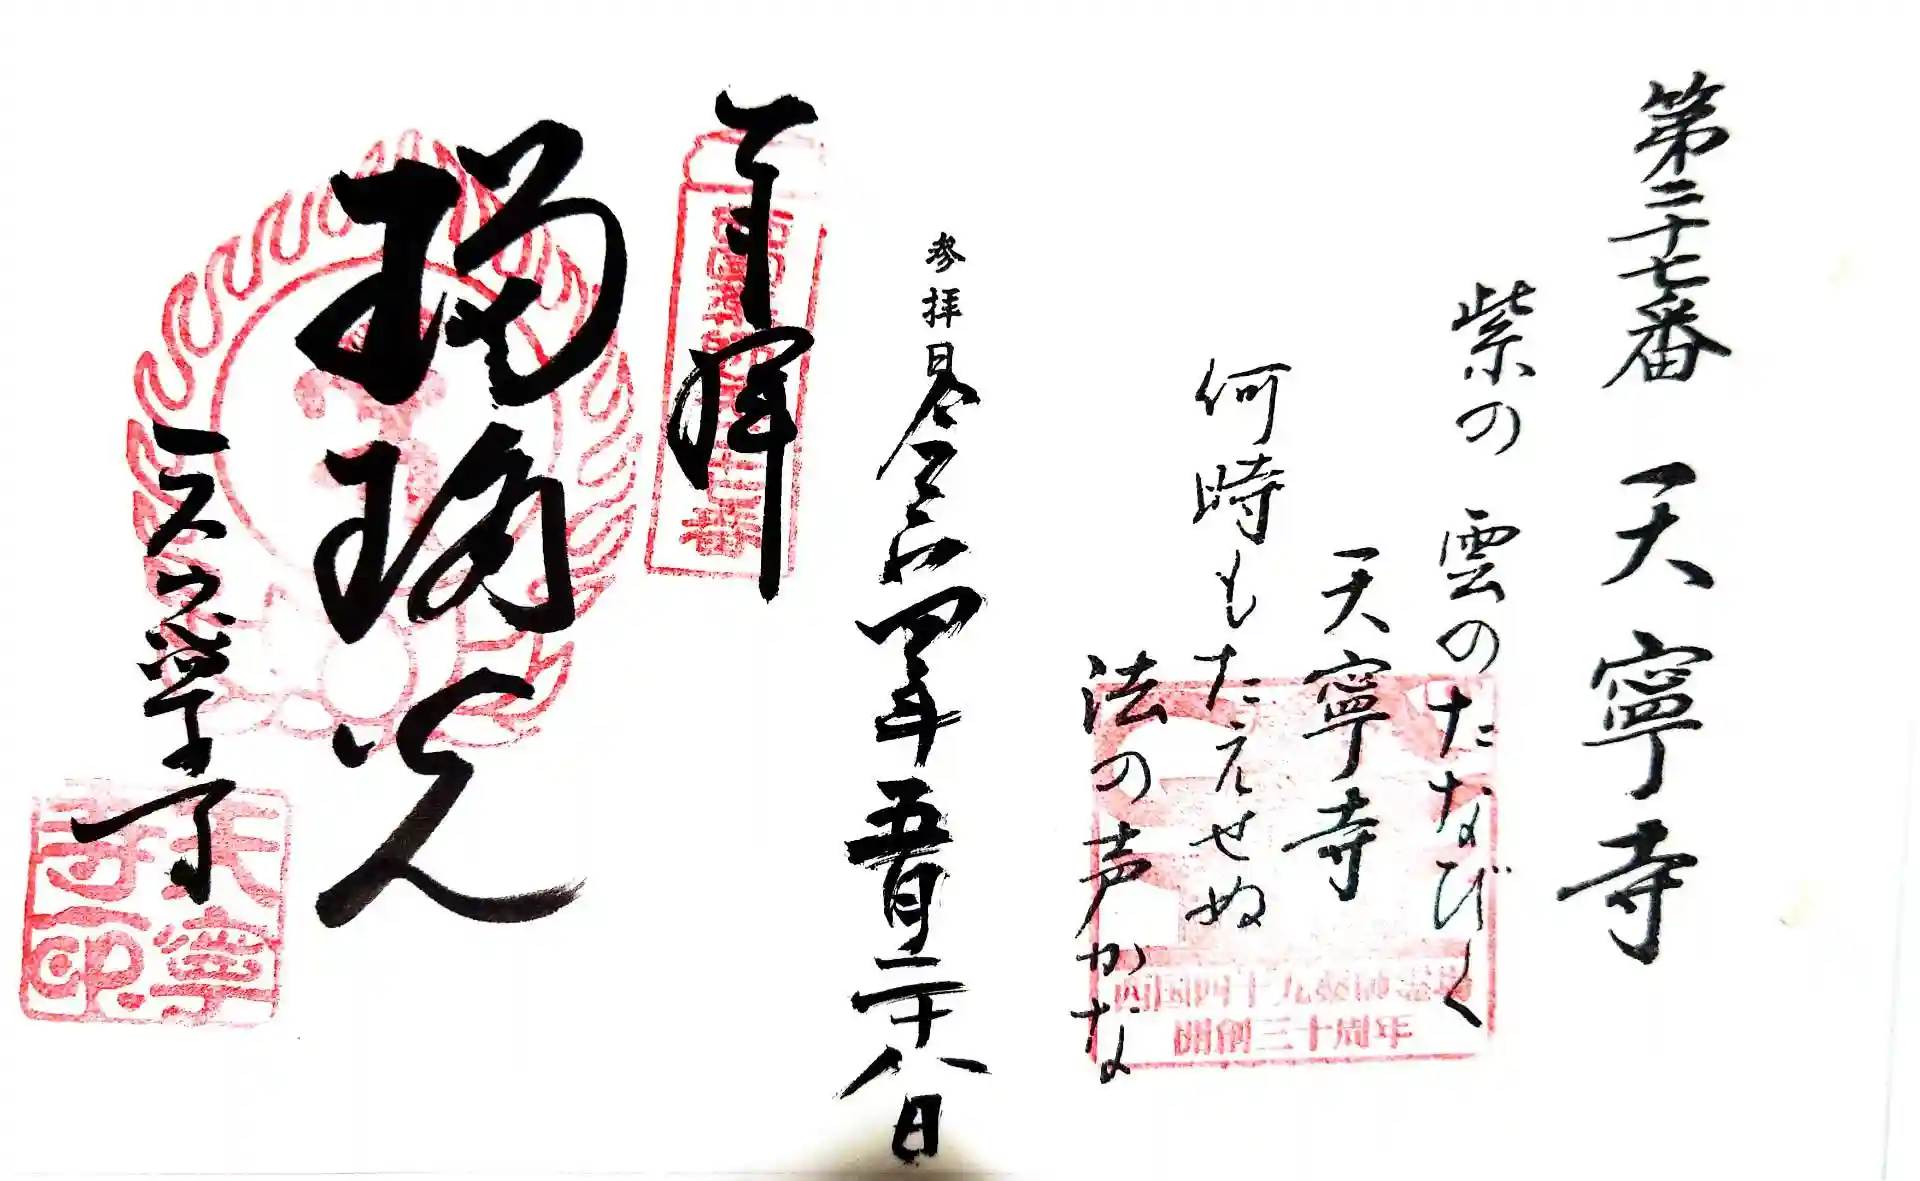 第二十七番 天寧寺
紫の 雲のたなびく
天寧寺
何時もたえせぬ
法の声かな
西国四十九薬師霊場
開創三十周年
参拝日 令和四年五月二十八日
奉拝
瑠璃光
天寧寺
天寧寺印